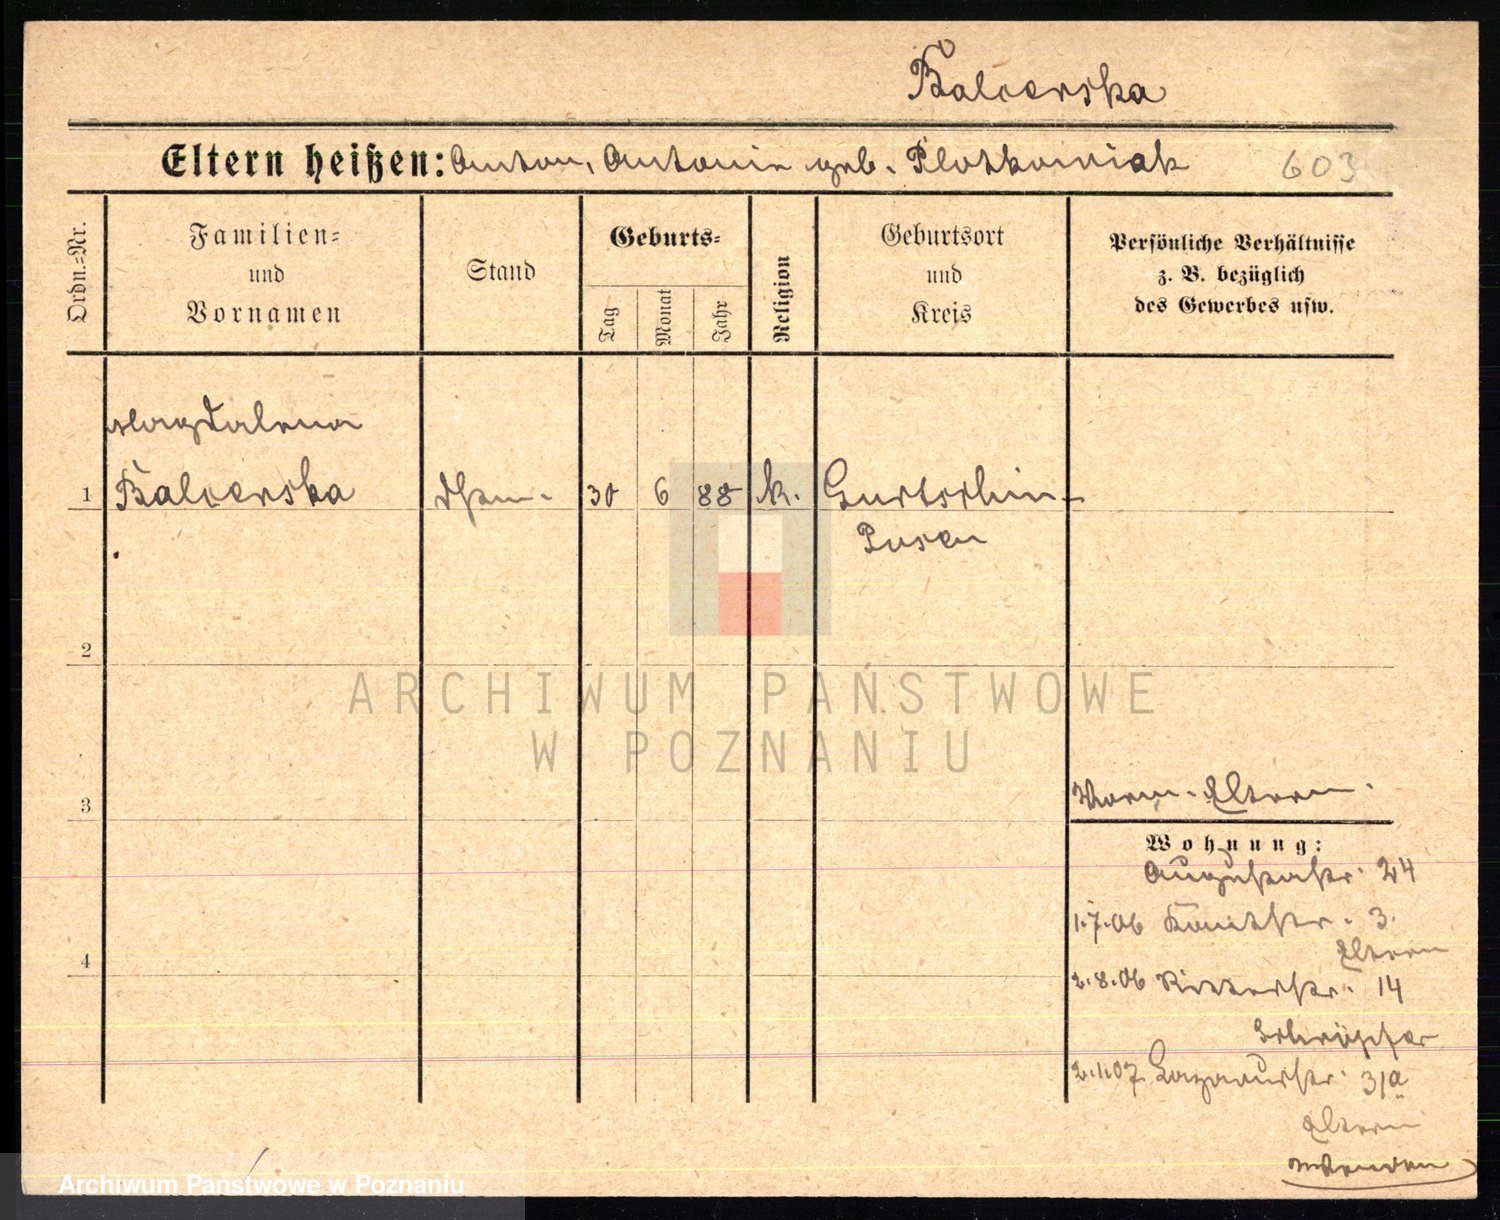 Balcerska
Eltern heißen: Anton, Antonie geb. Plotkowiak 603
Ordn.-Nr.
Familien-
und
Vornamen
Stand
Geburts-
Tag
Monat
Jahr
Religion
Geburtsort
und
Kreis
Persönliche Verhältnisse
z. B. bezüglich
des Gewerbes usw.
Magdalena
1 Balcerska 30 6 88 k. Gurtschin-
Posen
2
ARCHIWUM PAŃSTWOWE
W POZNANIU
3
Eltern.
Wohnung:
Augustastr. 24
1.7.06 3.
Eltern
2.8.06 Ritterstr. 14
Schröpfer
2.1.07 Lazarusstr. 31a
4
Eltern
Archiwum Państwowe w Poznaniu